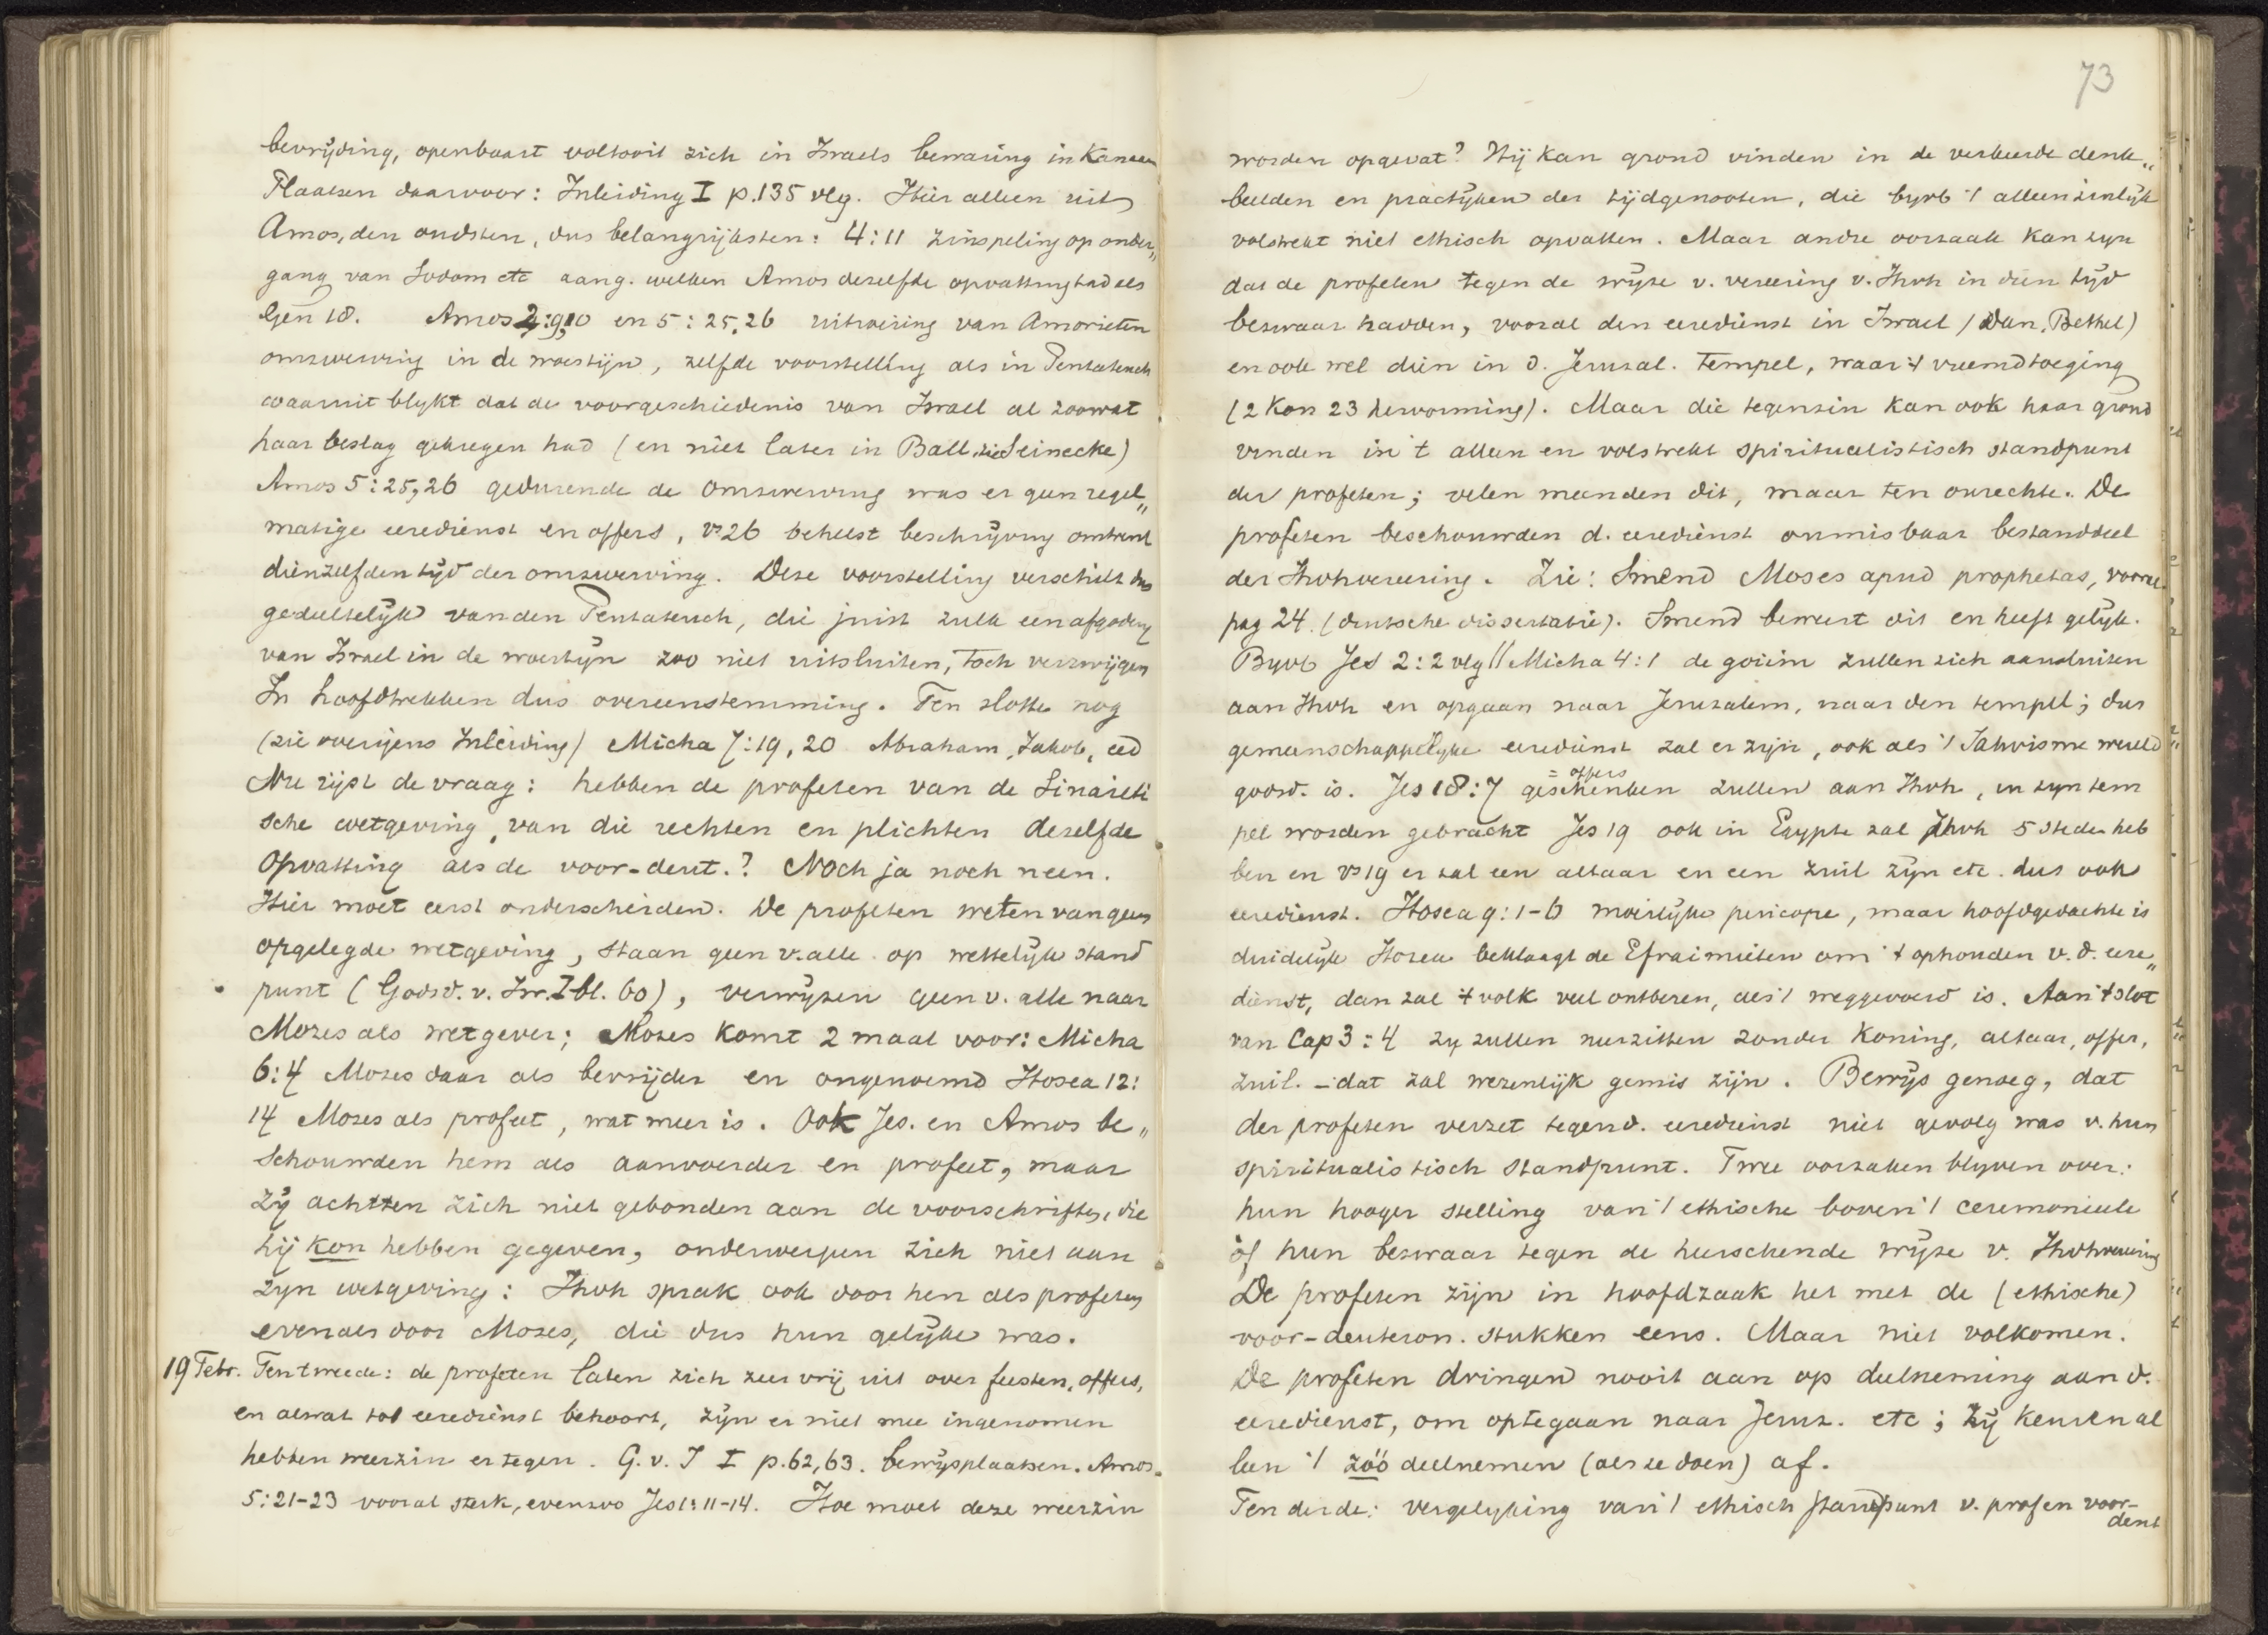 bevrijding, openbaart voltooit zich in Israels bewaring in Kanaan
Plaatsen daarvoor: Inleiding I p.135 vlg. Hier alleen uit
Amos, den oudsten, dus belangrijksten: 4:11 zinspeling op onder„
gang van Sodom etc aang. welken Amos dezelfde opvatting had als
Gen 18. Amos 2:9,10 en 5:25,26 uitroeiing van Amorieten
omzwerving in de woestijn, zelfde voorstelling als in Pentateuch
waaruit blykt dat de voorgeschiedenis van Israel al zoowat
haar beslag gekregen had (en niet later in Ball. zie Seinecke)
Amos 5:25,26 gedurende de omzwerving was er geen regel„
matige eeredienst en offers, vs 26 behelst beschrijving omtrent
dienzelfden tijd der omzwerving. Deze voorstelling verschilt dus
gedeeltelijk van den Pentateuch, die juist zulk een afgodery
van Israel in de woestijn zoo niet uitsluiten, toch verzwijgen
In hoofdtrekken dus overeenstemming. Ten slotte nog
(zie overigens Inleiding) Micha 7:19,20 Abraham, Jakob, eed
Nu rijst de vraag: hebben de profeten van de Sinaieti
sche wetgeving, van die rechten en plichten dezelfde
opvatting als de voor-deut.? Noch ja noch neen.
Hier moet eerst onderscheiden. De profeten weten van geen
opgelegde wetgeving, staan geen v. alle op wettelijk stand
punt (Godsd. v. Isr. I bl. 60), verwijzen geen v. alle naar
Mozes als wetgever; Mozes komt 2 maal voor: Micha
6:4 Mozes daar als bevrijder en ongenoemd Hosea 12:
14 Mozes als profeet, wat meer is. Ook Jes. en Amos be„
schouwden hem als aanvoerder en profeet, maar
zij achtten zich niet gebonden aan de voorschriften, die
hij kon hebben gegeven, onderwerpen zich niet aan
zyn wetgeving: Jhvh sprak ook door hen als profeten
evenals door Mozes, die dus hun gelijke was.
19 Febr. Ten tweede: de profeten laten zich zeer vrij uit over feesten, offers,
en alwat tot eeredienst behoort, zijn er niet mee ingenomen
hebben weerzin er tegen. G. v. I I p.62,63. bewijsplaatsen. Amos
5:21-23 vooral sterk, evenzoo Jes 1:11-14. Hoe moet deze weerzin
73
worden opgevat? Hij kan grond vinden in de verkeerde denk„
beelden en practijken der tijdgenooten, die byvb 't alleen zinlijk
volstrekt niet ethisch opvatten. Maar andre oorzaak kan zyn
dat de profeten tegen de wijze v. vereering v. Jhvh in dien tijd
bezwaar hadden, vooral den eeredienst in Israel (Dan, Bethel)
en ook wel dien in d. Jeruzal. tempel, waar 't vreemd toeging
(2 Kon 23 hervorming). Maar die tegenzin kan ook haar grond
vinden in 't alleen en volstrekt spiritualistisch standpunt
der profeten; velen meenden dit, maar ten onrechte. De
profeten beschouwden d. eeredienst onmisbaar bestanddeel
der Jhvhvereering. Zie: Smend Moses apud prophetas, vooral
pag 24. (duitsche dissertatie). Smend beweert dit en heeft gelijk.
Byvb Jes 2:2 vlg // Micha 4:1 de goiim zullen zich aansluiten
aan Jhvh en opgaan naar Jeruzalem, naar den tempel; dus
gemeenschappelyke eeredienst zal er zijn, ook als 't Jahvisme wereld
= offers
godsd. is. Jes 18:7 geschenken zullen aan Jhvh, in zyn tem
pel worden gebracht Jes 19 ook in Egypte zal Jhvh 5 steden heb
ben en vs 19 er zal een altaar en een zuil zijn etc. dus ook
eeredienst. Hosea 9:1-6 moeilijke pericope, maar hoofdgedachte is
duidelijk Hosea beklaagt de Efraimieten om 't ophouden v. d. eere„
dienst, dan zal 't volk veel ontberen, als 't weggevoerd is. Aan 't slot
van Cap 3:4 zy zullen neerzitten zonder Koning, altaar, offer,
zuil. – dat zal wezenlijk gemis zijn. Bewijs genoeg, dat
der profeten verzet tegen d. eeredienst niet gevolg was v. hun
spiritualistisch standpunt. Twee oorzaken blyven over:
hun hooger stelling van 't ethische boven 't ceremonieele
òf hun bezwaar tegen de heerschende wijze v. Jhvhvereering
De profeten zijn in hoofdzaak het met de (ethische)
voor-deuteron. stukken eens. Maar niet volkomen.
De profeten dringen nooit aan op deelneming aan d.
eeredienst, om optegaan naar Jeruz. etc; zij keuren al
leen 't zóó deelnemen (als ze doen) af.
Ten derde: vergelyking van 't ethisch standpunt v. prof en voor-
deut